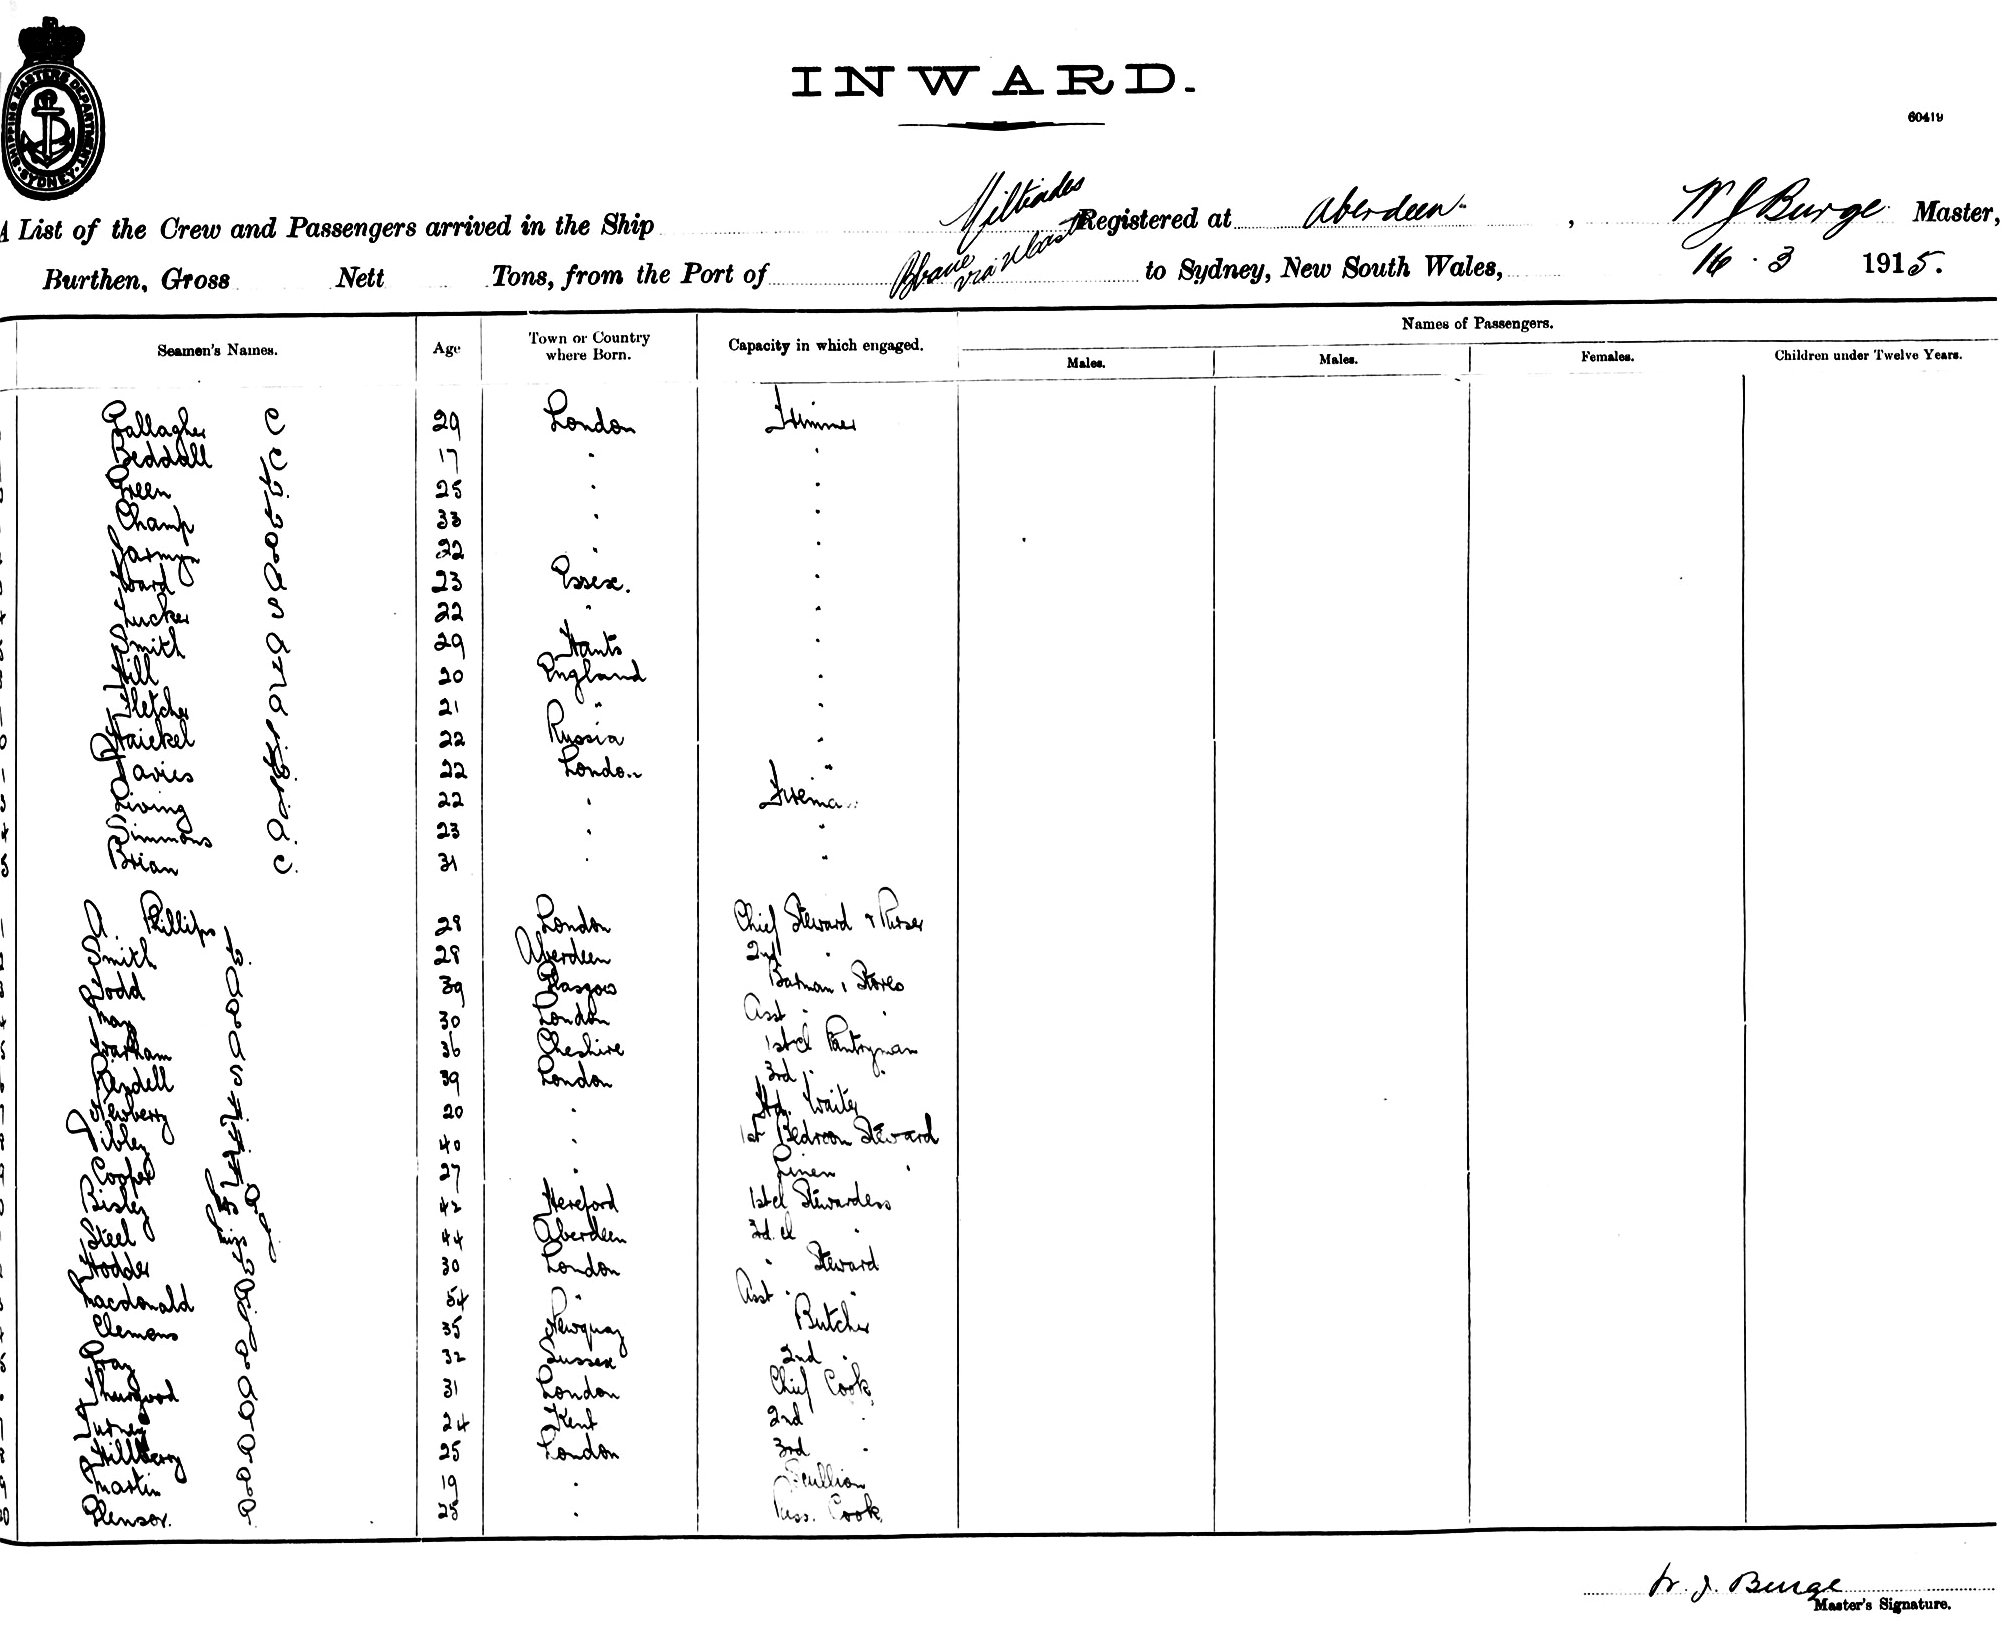 SHIPPING MASTERS DEPARTMENT
SYDNEY
INWARD.
60419
A List of the Crew and Passengers arrived in the Ship Miltiades Registered at Aberdeen, W J Burge Master,
Burthen, Gross Nett Tons, from the Port of Bbane via to Sydney, New South Wales, 16 . 3 1915.
Seamen's Names. Age Town or Country where Born. Capacity in which engaged. Names of Passengers.
Males. Males. Females. Children under Twelve Years.
Gallagher 29 London Trimmer
Beddall 17 " "
Green 25 " "
Champ 33 " "
Jarmyn 22 " "
Ward 23 Essex. "
Tucker 22 " "
Smith 29 Hants "
Hill 20 England "
Fletcher 21 " "
Haickel 22 Russia "
Davies 22 London "
Living 22 " Firema
Simmons 23 " "
Brian 31 " "
A. Phillips 28 London Chief Steward & Purser
Smith 28 Aberdeen 2nd "
Todd 39 Glasgow Barman & Stores
May 30 London Asst " "
Warham 36 Cheshire 1st cl Pantryman
Randell 39 London 3rd " "
Newberry 20 " Hd. Waiter
Sibley 40 " 1st Bedroom Steward
Cooper 27 " Linen "
Bisley 42 Hereford 1st cl Stewardess
Steel 44 Aberdeen 3rd. cl "
Hodder 30 London " Steward
Macdonald 54 " Asst " "
Clemens 35 Newquay Butcher
Gray 32 Sussex 2nd "
Thurgood 31 London Chief Cook
Turney 24 Kent 2nd "
Hillberry 25 London 3rd "
Martin 19 " Scullion
Plensor. 25 " Pass. Cook
W. J. Burge
Master's Signature.